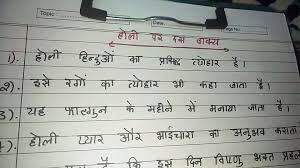 Topic
Date
Page No.
होली पर दस वाक्य
1). होली हिन्दुओं का प्रसिद्ध त्योहार है।
2). इसे रंगों का त्योहार भी कहा जाता है।
3). यह फाल्गुन के महीने में मनाया जाता है।
4). होली प्यार और भाईचारा का अनुभव कराता
है कि इस दिन विष्णु भक्त